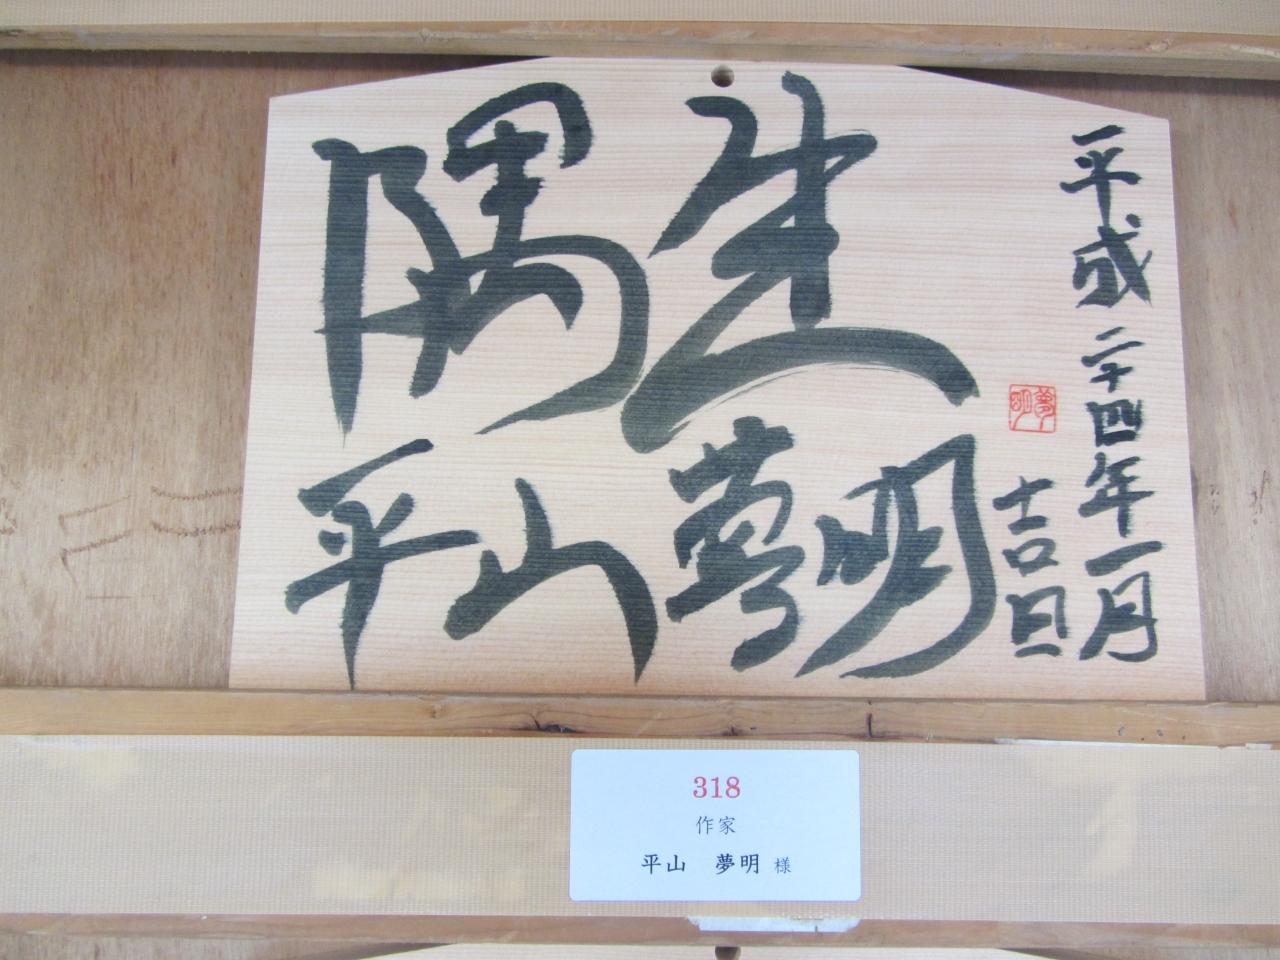 平成二十四年一月
吉旦
夢明
平山夢明
318
作家
平山 夢明 様